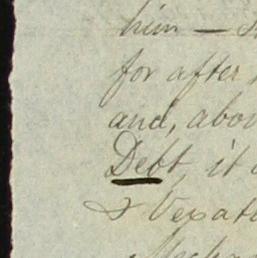 him —
for after
and, abov
Debt, it
& Vexat